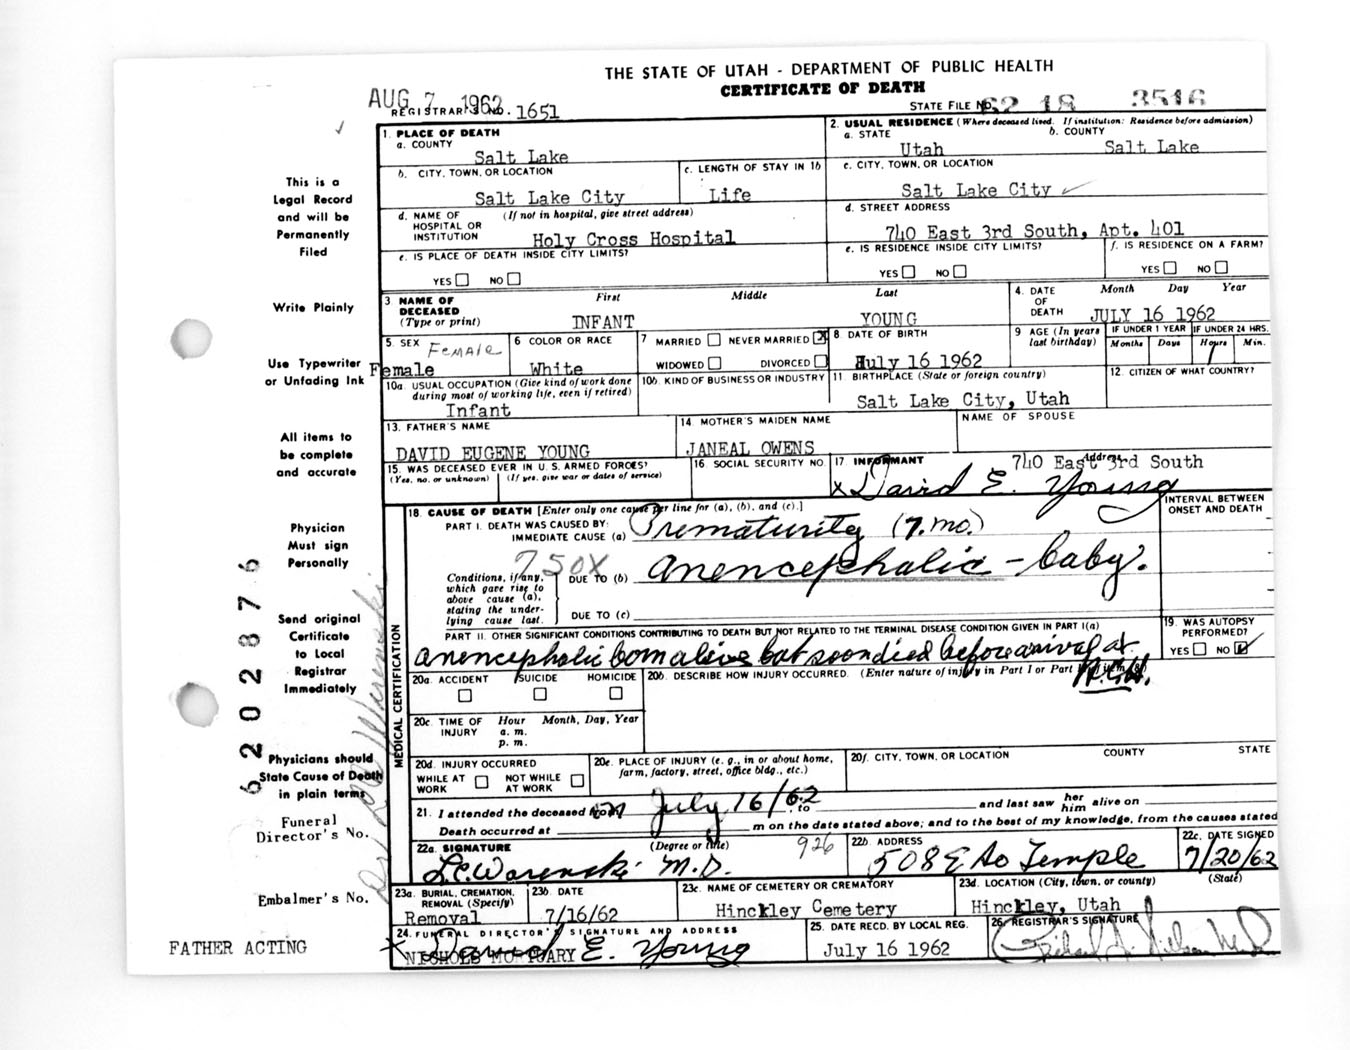 THE STATE OF UTAH - DEPARTMENT OF PUBLIC HEALTH
CERTIFICATE OF DEATH
AUG 7 1962
REGISTRAR'S NO. 1651
STATE FILE NO. 62 18 3516
1. PLACE OF DEATH
a. COUNTY
Salt Lake
2. USUAL RESIDENCE (Where deceased lived. If institution: Residence before admission)
a. STATE
Utah
b. COUNTY
Salt Lake
b. CITY, TOWN, OR LOCATION
Salt Lake City
c. LENGTH OF STAY IN 1b
Life
c. CITY, TOWN, OR LOCATION
Salt Lake City
d. NAME OF HOSPITAL OR INSTITUTION
(If not in hospital, give street address)
Holy Cross Hospital
d. STREET ADDRESS
740 East 3rd South, Apt. 401
e. IS PLACE OF DEATH INSIDE CITY LIMITS?
YES NO
e. IS RESIDENCE INSIDE CITY LIMITS?
YES NO
f. IS RESIDENCE ON A FARM?
YES NO
3 NAME OF DECEASED
(Type or print)
First Middle Last
INFANT YOUNG
4. DATE OF DEATH
Month Day Year
JULY 16 1962
5. SEX
Female
Female
6 COLOR OR RACE
White
7 MARRIED NEVER MARRIED X
WIDOWED DIVORCED
8 DATE OF BIRTH
July 16 1962
9 AGE (In years last birthday)
IF UNDER 1 YEAR
Months Days
IF UNDER 24 HRS.
Hours Min.
10a. USUAL OCCUPATION (Give kind of work done during most of working life, even if retired)
Infant
10b. KIND OF BUSINESS OR INDUSTRY
11 BIRTHPLACE (State or foreign country)
Salt Lake City, Utah
12. CITIZEN OF WHAT COUNTRY?
13. FATHER'S NAME
DAVID EUGENE YOUNG
14 MOTHER'S MAIDEN NAME
JANEAL OWENS
NAME OF SPOUSE
15. WAS DECEASED EVER IN U. S. ARMED FORCES?
(Yes, no, or unknown) (If yes, give war or dates of service)
16. SOCIAL SECURITY NO.
17 INFORMANT
Address
740 East 3rd South
x David E. Young
18. CAUSE OF DEATH [Enter only one cause per line for (a), (b), and (c).]
INTERVAL BETWEEN ONSET AND DEATH
PART I. DEATH WAS CAUSED BY:
IMMEDIATE CAUSE (a) Prematurity (7. mo.)
750X
Conditions, if any, which gave rise to above cause (a), stating the underlying cause last.
DUE TO (b) anencephalic - baby.
DUE TO (c)
PART II. OTHER SIGNIFICANT CONDITIONS CONTRIBUTING TO DEATH BUT NOT RELATED TO THE TERMINAL DISEASE CONDITION GIVEN IN PART I(a)
anencephalic born alive but soon died before arrival at H.C.H.
19. WAS AUTOPSY PERFORMED?
YES NO
20a. ACCIDENT SUICIDE HOMICIDE
20b. DESCRIBE HOW INJURY OCCURRED. (Enter nature of injury in Part I or Part
20c. TIME OF INJURY
Hour Month, Day, Year
a. m.
p. m.
20d. INJURY OCCURRED
WHILE AT WORK NOT WHILE AT WORK
20e. PLACE OF INJURY (e. g., in or about home, farm, factory, street, office bldg., etc.)
20f. CITY, TOWN, OR LOCATION COUNTY STATE
21. I attended the deceased from July 16/62, to and last saw her him alive on
Death occurred at m on the date stated above; and to the best of my knowledge, from the causes stated
22a. SIGNATURE (Degree or title)
L.C. Warenski M.D.
926
22b. ADDRESS
508 E So Temple
22c. DATE SIGNED
7/20/62
23a. BURIAL, CREMATION, REMOVAL (Specify)
Removal
23b. DATE
7/16/62
23c. NAME OF CEMETERY OR CREMATORY
Hinckley Cemetery
23d. LOCATION (City, town, or county) (State)
Hinckley, Utah
24. FUNERAL DIRECTOR'S SIGNATURE AND ADDRESS
x David E. Young
NICHOLS MORTUARY
25. DATE RECD. BY LOCAL REG.
July 16 1962
26. REGISTRAR'S SIGNATURE
MEDICAL CERTIFICATION
This is a
Legal Record
and will be
Permanently
Filed
Write Plainly
Use Typewriter
or Unfading Ink
All items to
be complete
and accurate
Physician
Must sign
Personally
Send original
Certificate
to Local
Registrar
Immediately
Physicians should
State Cause of Death
in plain terms
Funeral
Director's No.
Embalmer's No.
FATHER ACTING
6202876